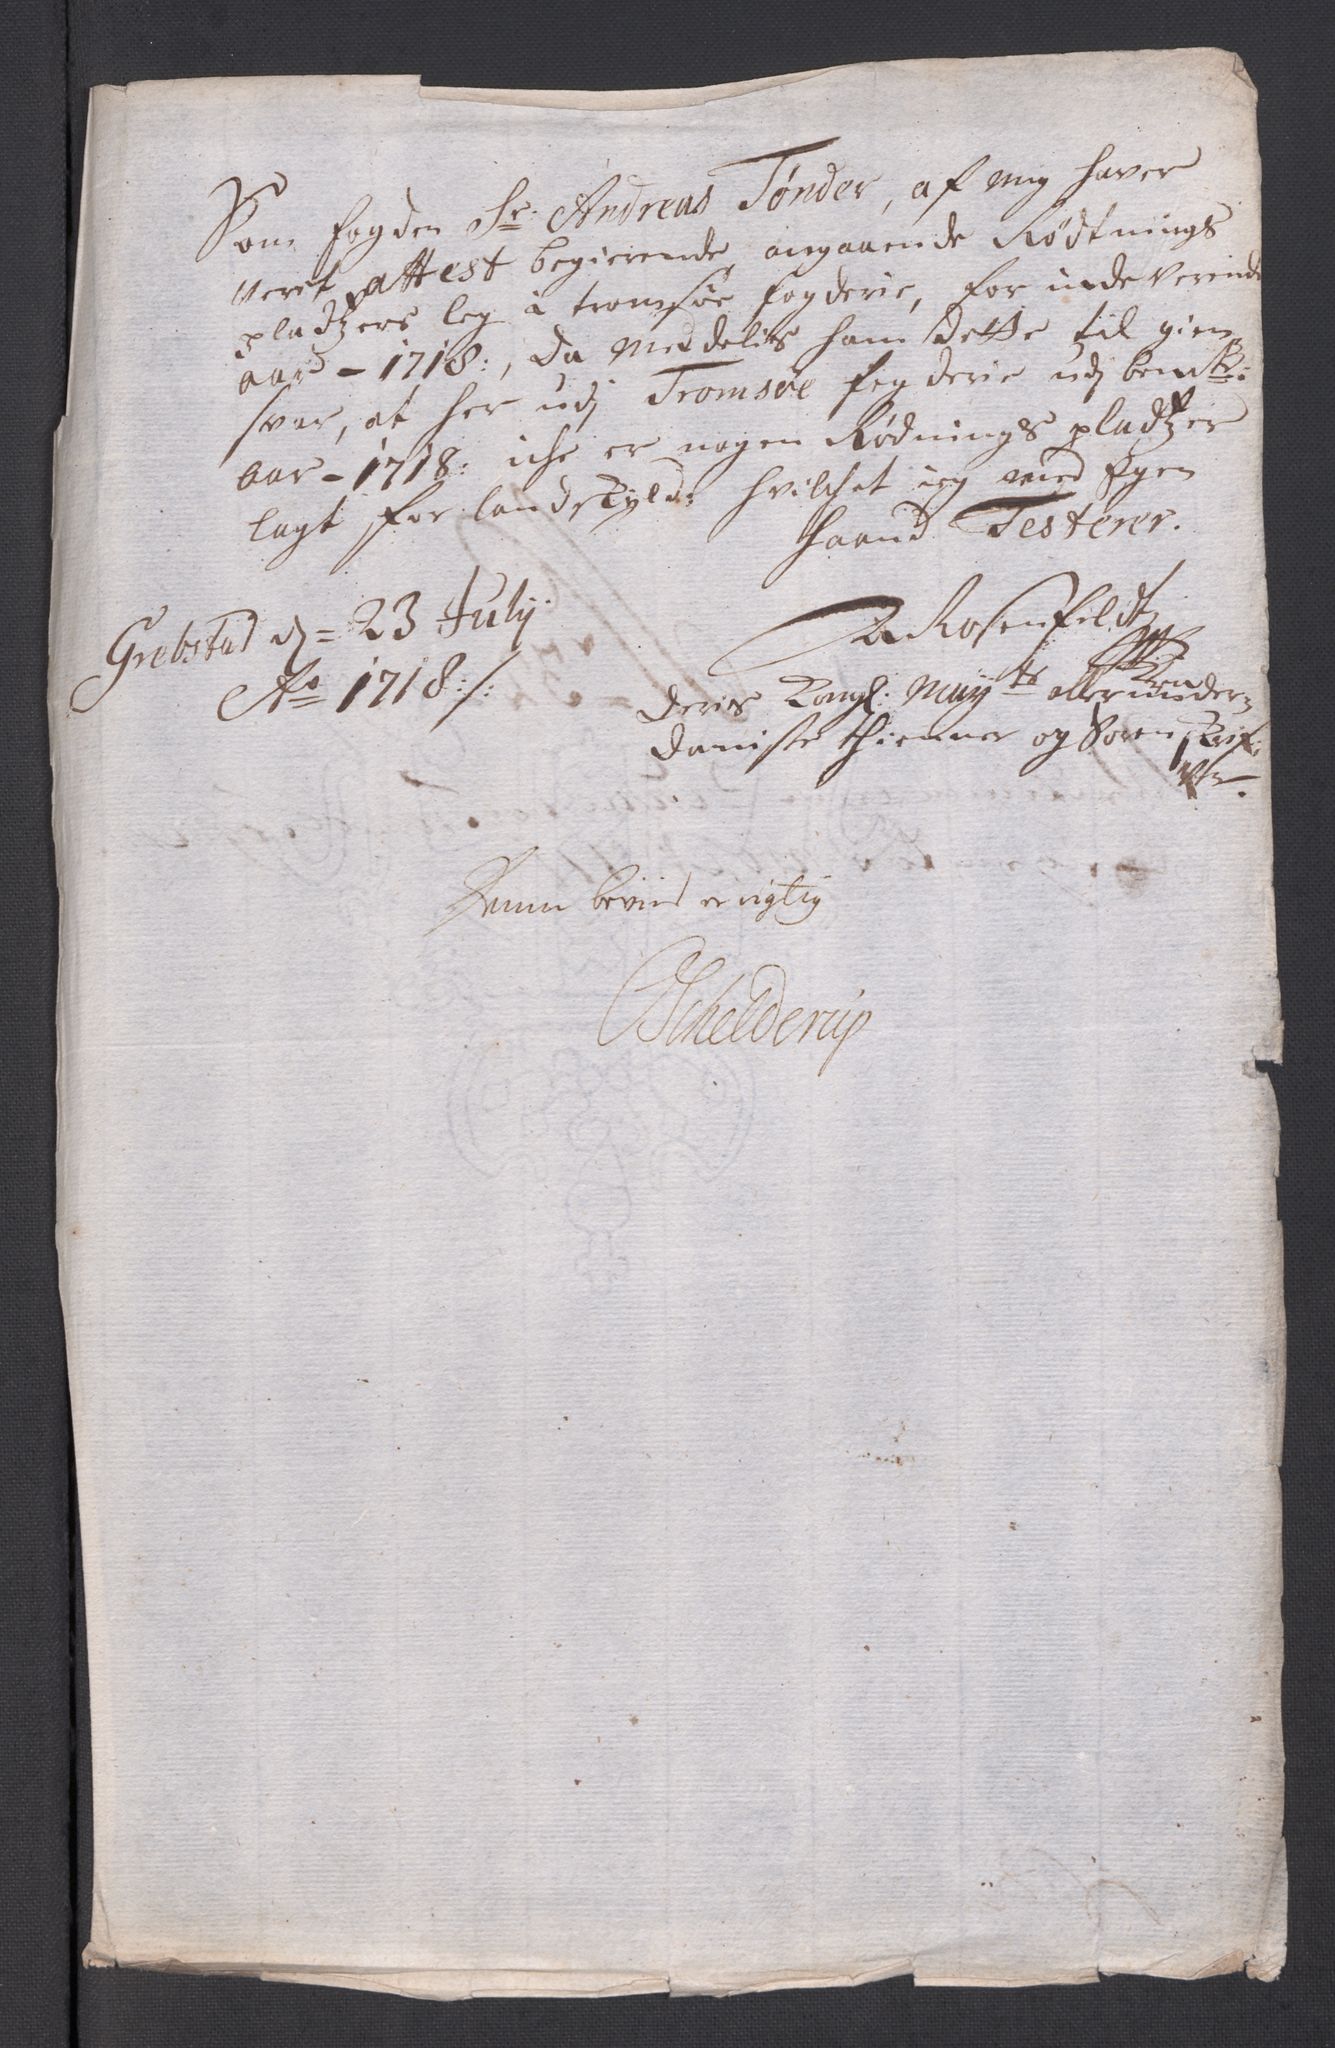 Som fogden Sr. Andreas Tønder, af mig haver
verit attest begierende, angaaende Rødtnings
pladzers leg i tromsøe fogderie, for inde verende
aar - 1718:, da meddelis ham dette til gien
svar, at her udj Tromsøe fogderie udj bemte:
aar - 1718: iche er nogen Rødnings pladzer
lagt for landskyld: hvilchet ieg med Egen
haand Testerer.
Grebstad dj = 23 July
Ao 1718:/:
A Rosenfeldt
Deris Kongl: Mayts allerunder=
daniste thienner og Soren skrif:
ver.
Denne beviis er rigtig
Schelderup